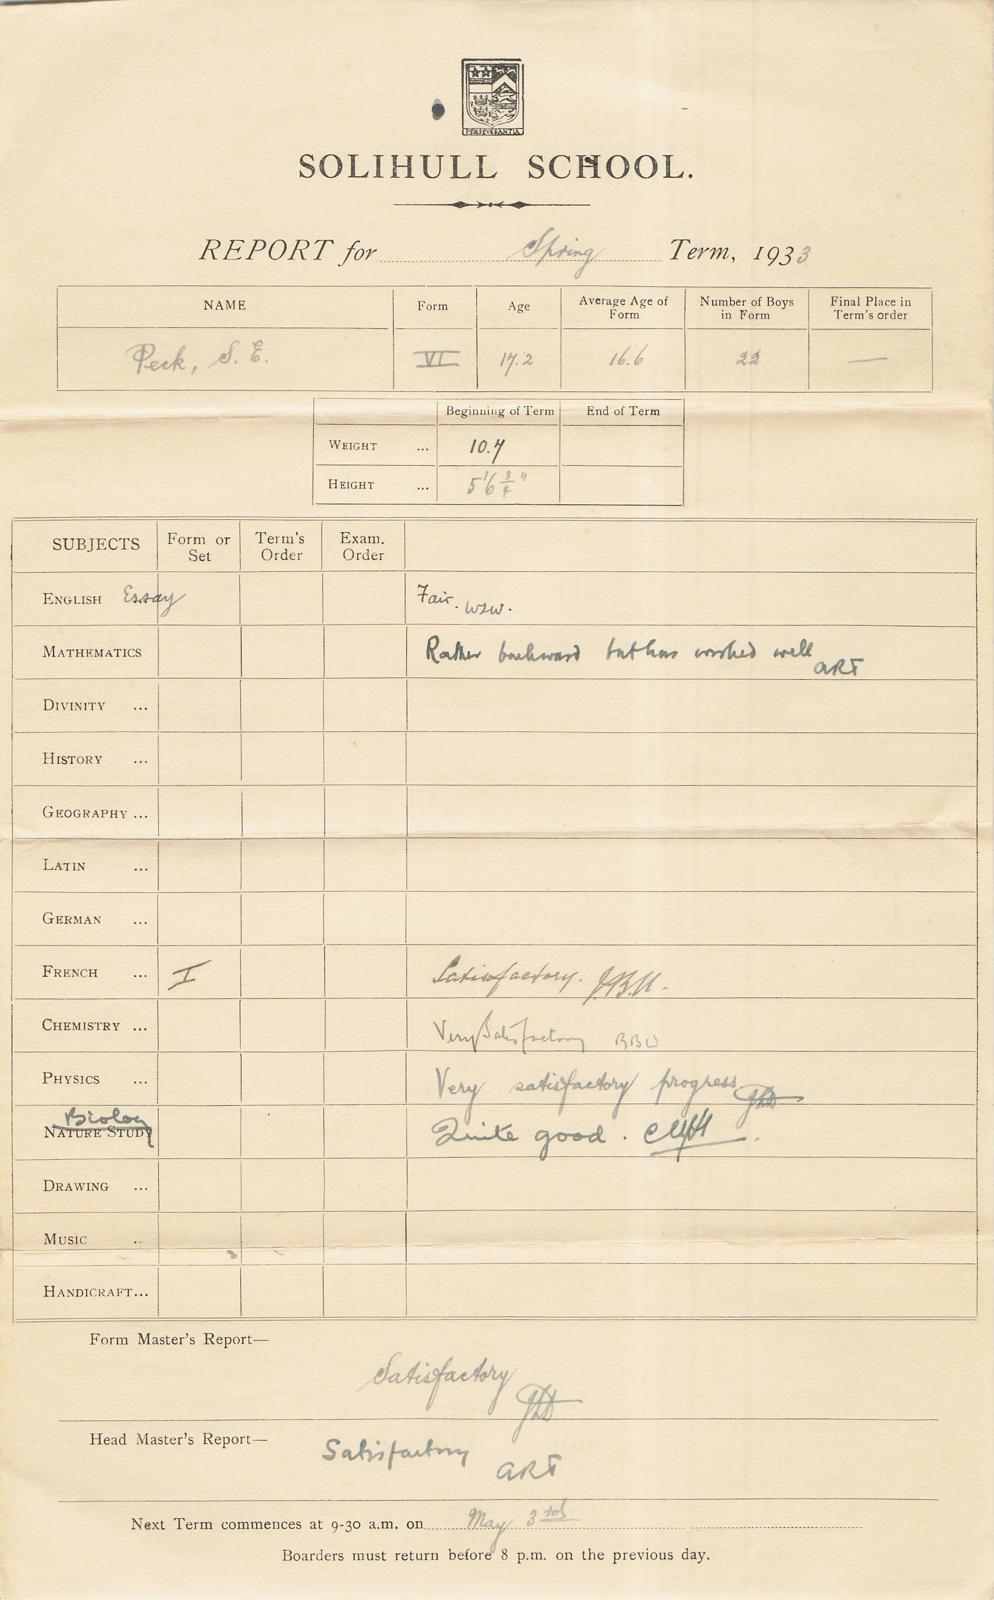 PERSEVERANTIA
SOLIHULL SCHOOL.
REPORT for Spring Term, 1933
NAME Form Age Average Age of Form Number of Boys in Form Final Place in Term's order
Peck, S. E. VI 17.2 16.6 22 —
Beginning of Term End of Term
WEIGHT ... 10.7
HEIGHT ... 5'6 3/4"
SUBJECTS Form or Set Term's Order Exam. Order
ENGLISH Essay Fair. WIW.
MATHEMATICS Rather backward but has worked well ART
DIVINITY ...
HISTORY ...
GEOGRAPHY ...
LATIN ...
GERMAN ...
FRENCH ... I Satisfactory.
CHEMISTRY ... Very Satisfactory
PHYSICS ... Very satisfactory progress
Biology
NATURE STUDY Quite good.
DRAWING ...
MUSIC ..
HANDICRAFT...
Form Master's Report—
Satisfactory
Head Master's Report—
Satisfactory
ART
Next Term commences at 9-30 a.m. on May 3rd
Boarders must return before 8 p.m. on the previous day.